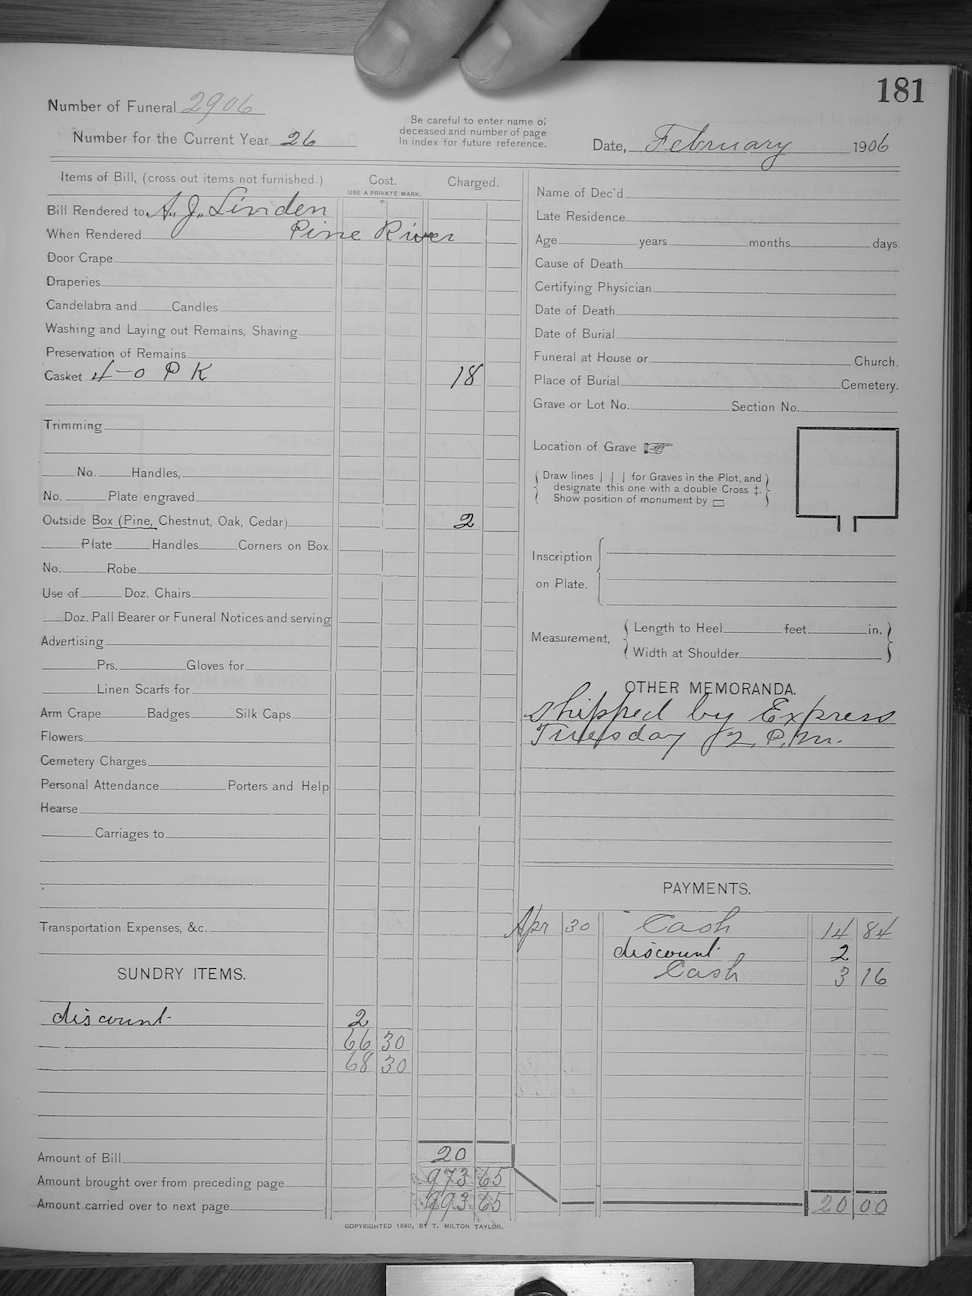 181
Number of Funeral 2906
Number for the Current Year 26
Be careful to enter name of
deceased and number of page
In index for future reference.
Date, February 1906
Items of Bill, (cross out items not furnished.) Cost. Charged.
USE A PRIVATE MARK.
Bill Rendered to A. J. Linden
When Rendered Pine River
Door Crape
Draperies
Candelabra and Candles
Washing and Laying out Remains, Shaving
Preservation of Remains
Casket 4-0 P K 18
Trimming
No. Handles,
No. Plate engraved
Outside Box (Pine, Chestnut, Oak, Cedar) 2
Plate Handles Corners on Box.
No. Robe
Use of Doz. Chairs
Doz. Pall Bearer or Funeral Notices and serving
Advertising
Prs. Gloves for
Linen Scarfs for
Arm Crape Badges Silk Caps
Flowers
Cemetery Charges
Personal Attendance Porters and Help
Hearse
Carriages to
Transportation Expenses, &c.
SUNDRY ITEMS.
discount 2
66 30
68 30
Amount of Bill 20
Amount brought over from preceding page 973 65
Amount carried over to next page 993 65
COPYRIGHTED 1890, BY T. MILTON TAYLOR.
Name of Dec'd
Late Residence
Age years months days
Cause of Death
Certifying Physician
Date of Death
Date of Burial
Funeral at House or Church.
Place of Burial Cemetery.
Grave or Lot No. Section No.
Location of Grave
Draw lines | | | for Graves in the Plot, and
designate this one with a double Cross ‡.
Show position of monument by □
Inscription
on Plate.
Measurement,
Length to Heel feet in.
Width at Shoulder
OTHER MEMORANDA.
Shipped by Express
Tuesday 12 P.M.
PAYMENTS.
Apr 30 Cash 14 84
discount 2
Cash 3 16
20 00